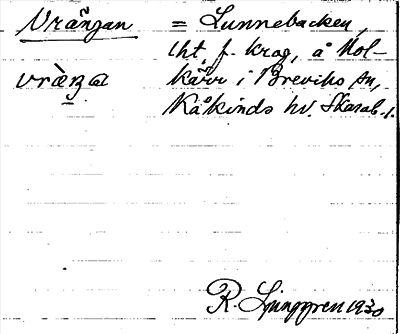 Vrängan = Lunnebacken,
tht f. krog, å Mol-
vràŋa kärr i Breviks sn,
Kåkinds hd. Skarab. l.
R. Ljunggren 1930